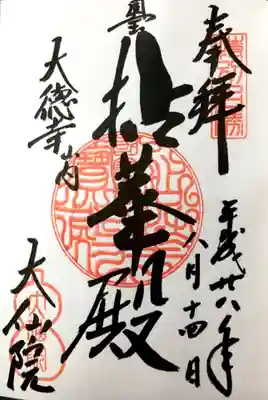 奉拝
平成廿八年
八月十四日
拈華殿
大徳寺山内
大仙院